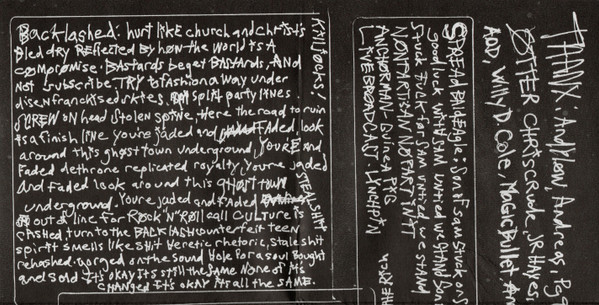 Backlashed: hurt like church and christs
bled dry Reflected by how the world is A
compromise. BASTARDS beget BASTARDS. AND
Not subscribe. TRY to fashion a way under
disenfranchised unites, split party lines.
SCREW on head stolen spine. Here the road to ruin
is a finish line you're jaded and FADED, look
around this ghost town underground, YOU'RE and
Faded dethrone replicated royalty. You're jaded
and FADED look around this GHOST TOWN
underground. You're jaded and FADED
out of line for ROCK "N" Roll call CULTURE is
stashed, turn to the BACKLASH counterfeit teen
spirit smells like shit heretic rhetoric, stale shit
rehashed. gorged on the sound hole for a soul Bought
and sold its okay its still the SAME None of its
CHANGED its okay its all the SAME.
STEAL SHIT
SPREAD EAGLE: Son of Sam stuck on
Good luck with SAM united we stand Son
Stuck. Fuck for Sam united we stand
NONPARTISAN NO PARTY IN IT
ANCHORMAN - Guinea PIG
LIVE BROADCAST LYNCHPIN
THANX: Andy Low, Andreas,
OTTER, CHRIS CRUDE, JR HAYES
Willy D, Cole, Magic Bullet